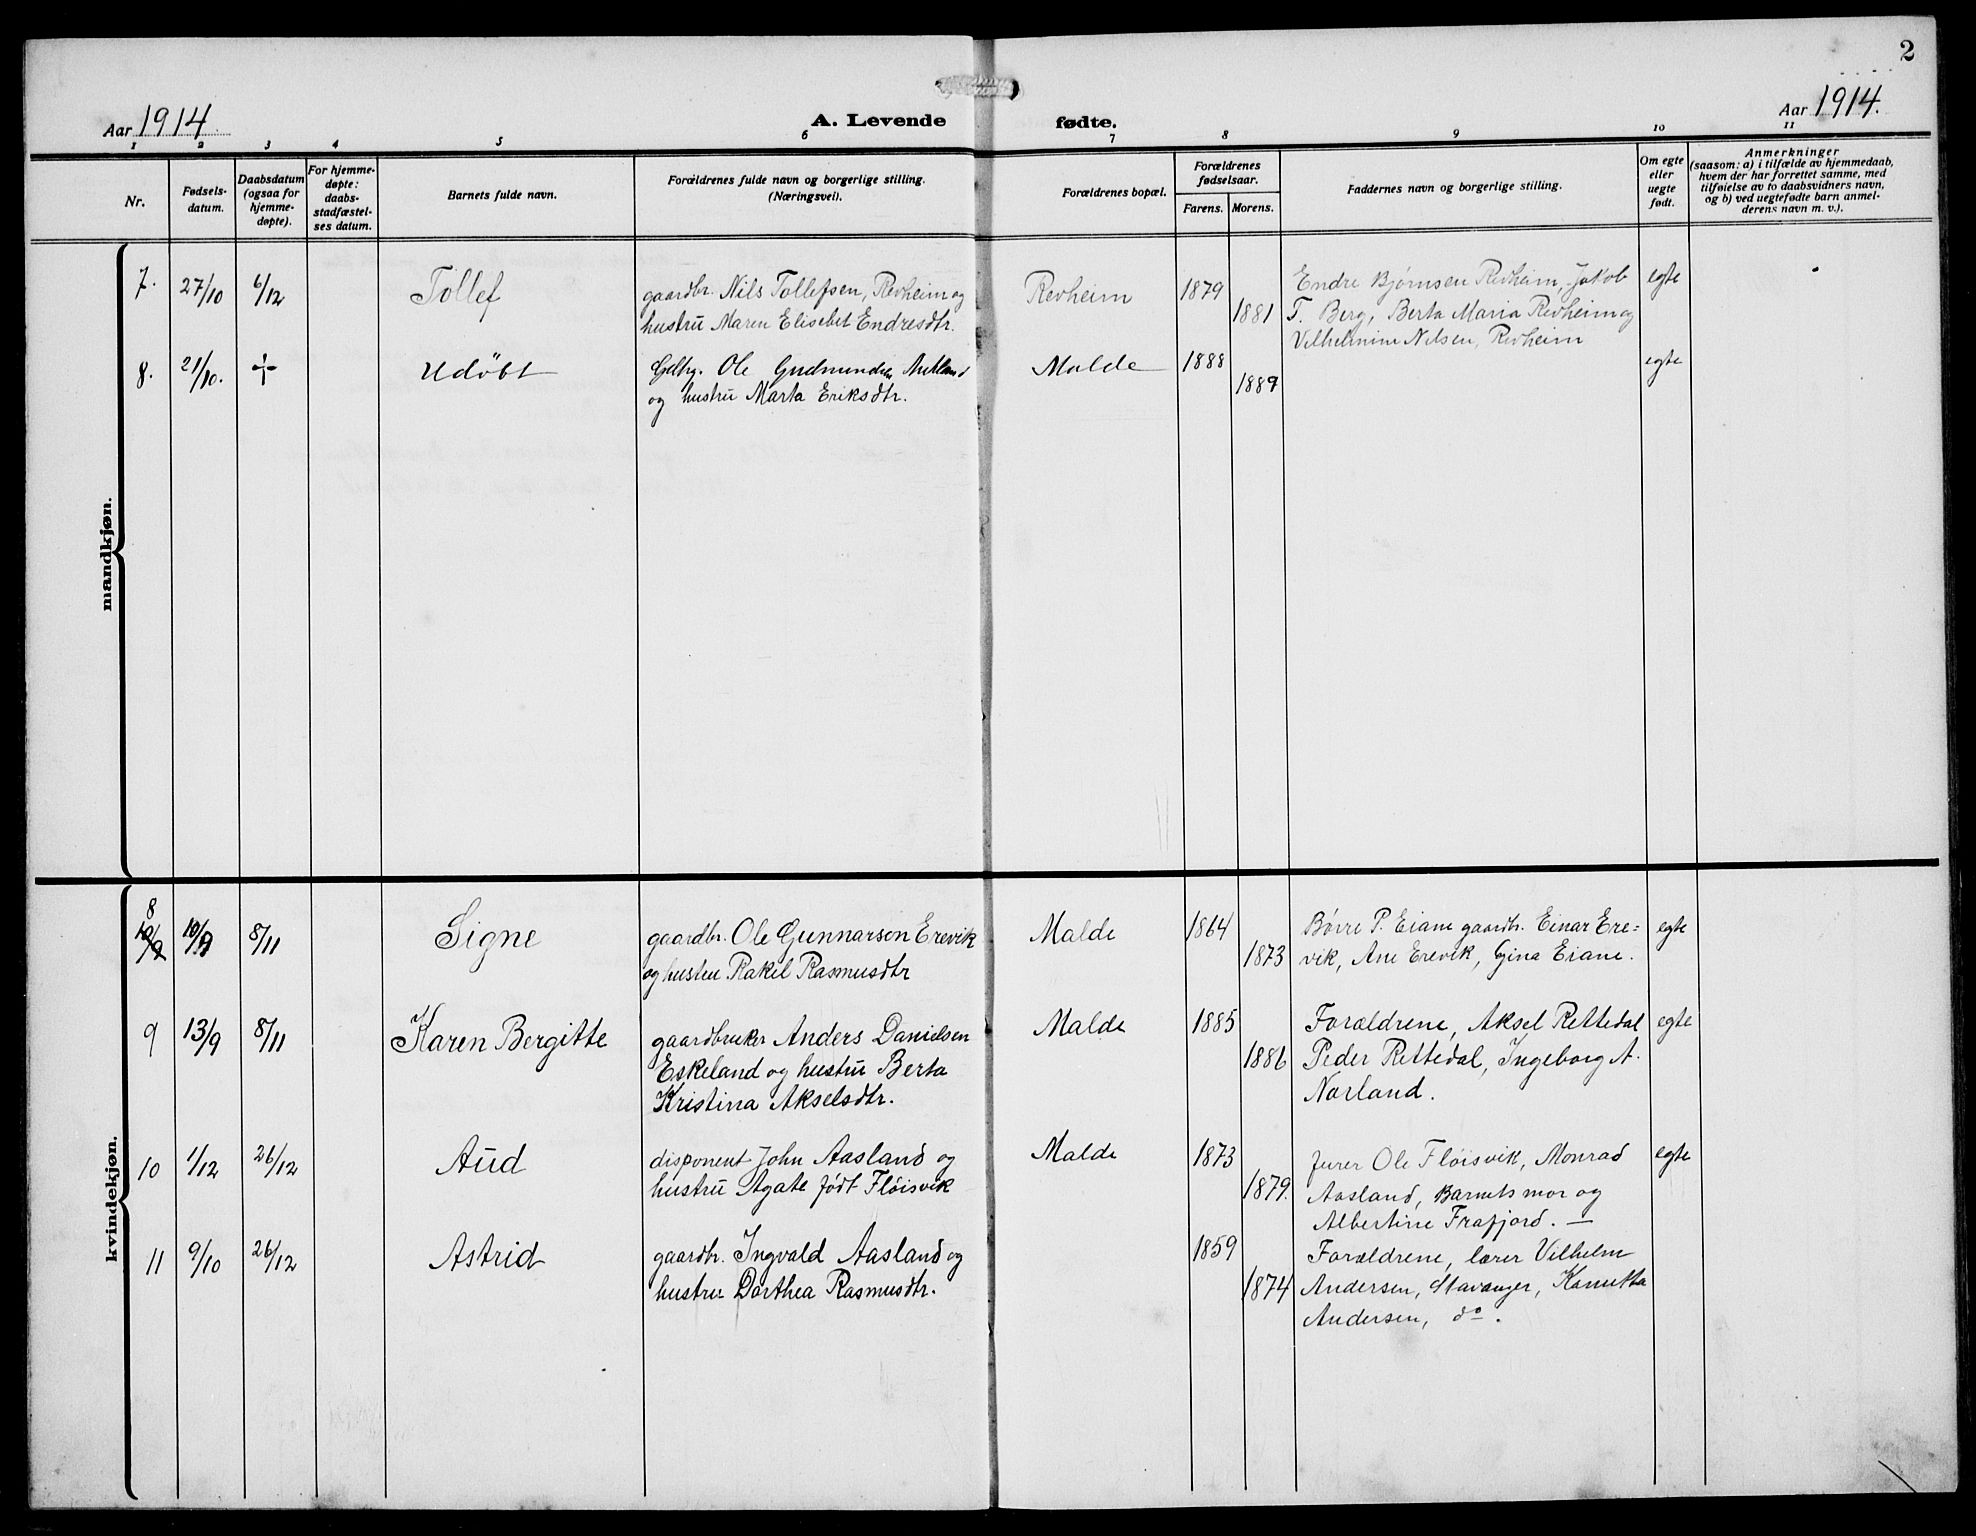 2
Aar 1914
A. Levende
fødte.
Aar 1914.
1 2 3 4 5 6 7 8 9 10 11
Nr.
Fødsels-
datum.
Daabsdatum
(ogsaa for
hjemme-
døpte).
For hjemme-
døpte:
daabs-
stadfæstel-
ses datum.
Barnets fulde navn.
Forældrenes fulde navn og borgerlige stilling.
(Næringsvei).
Forældrenes bopæl.
Forældrenes
fødselsaar.
Farens. Morens.
Faddernes navn og borgerlige stilling.
Om egte
eller
uegte
født.
Anmerkninger
(saasom: a) i tilfælde av hjemmedaab,
hvem der har forrettet samme, med
tilføielse av to daabsvidners navn,
og b) ved uegtefødte barn anmel-
derens navn m. v.).
mandkjøn.
7. 27/10 6/12 Tollef
gaardbr. Nils Tollefsen, Revheim og
hustru Maren Elisebet Endresdtr.
Revheim 1879
1881
Endre Bjørnsen Revheim, Jakob
T. Berg, Berta Maria Revheim og
Vilhelmine Nilsen, Revheim
egte
8. 21/10. ÷ Udøbt
Gdbr. Ole Gudmundsen
og hustru Marta Eriksdtr.
Malde 1888
1889
egte
kvindekjøn.
8 10/9 8/11 Signe
gaardbr. Ole Gunnarson Erevik
og hustru Rakel Rasmusdtr
Malde 1864
1873
Børre P. Eiane gaardbr. Einar Ere=
vik, Ane Erevik, Gina Eiane.
egte
9 13/9 8/11 Karen Bergitte
gaardbruker Anders Danielsen
Eskeland og hustru Berta
Kristina Akselsdtr.
Malde 1885
1886
Forældrene, Aksel Rettedal
Peder Rettedal, Ingeborg A.
Norland.
egte
10 1/12 26/12 Aud
disponent John Aasland og
hustru Agate født Fløisvik
Malde 1873
1879.
Ole Fløisvik, Monrad
Aasland, Barnets mor og
Albertine Frafjord. —
egte
11 9/10 26/12 Astrid
gaardbr. Ingvald Aasland og
hustru Dorthea Rasmusdtr.
1859
1874
Forældrene, lærer Vilhelm
Andersen, Stavanger, Kanutta
Andersen, do.